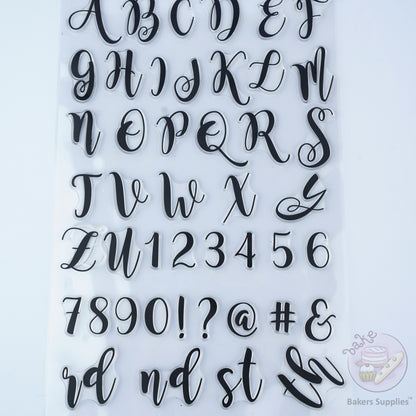 A B C D E F
G H I J K L M
N O P Q R S
T V W X Y
Z U 1 2 3 4 5 6
7 8 9 0 ! ? @ # &
rd nd st th
bake
Bakers Supplies™